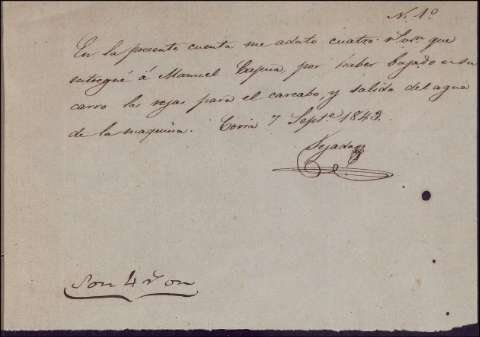 N. 1º
En la presente cuenta me adato cuatro rs von que
entregué á Manuel por haber bajado en su
carro las rejas para el carcabo, y salida del agua
de la maquina. Coria 7 Septe 1843.
Son 4 rs on